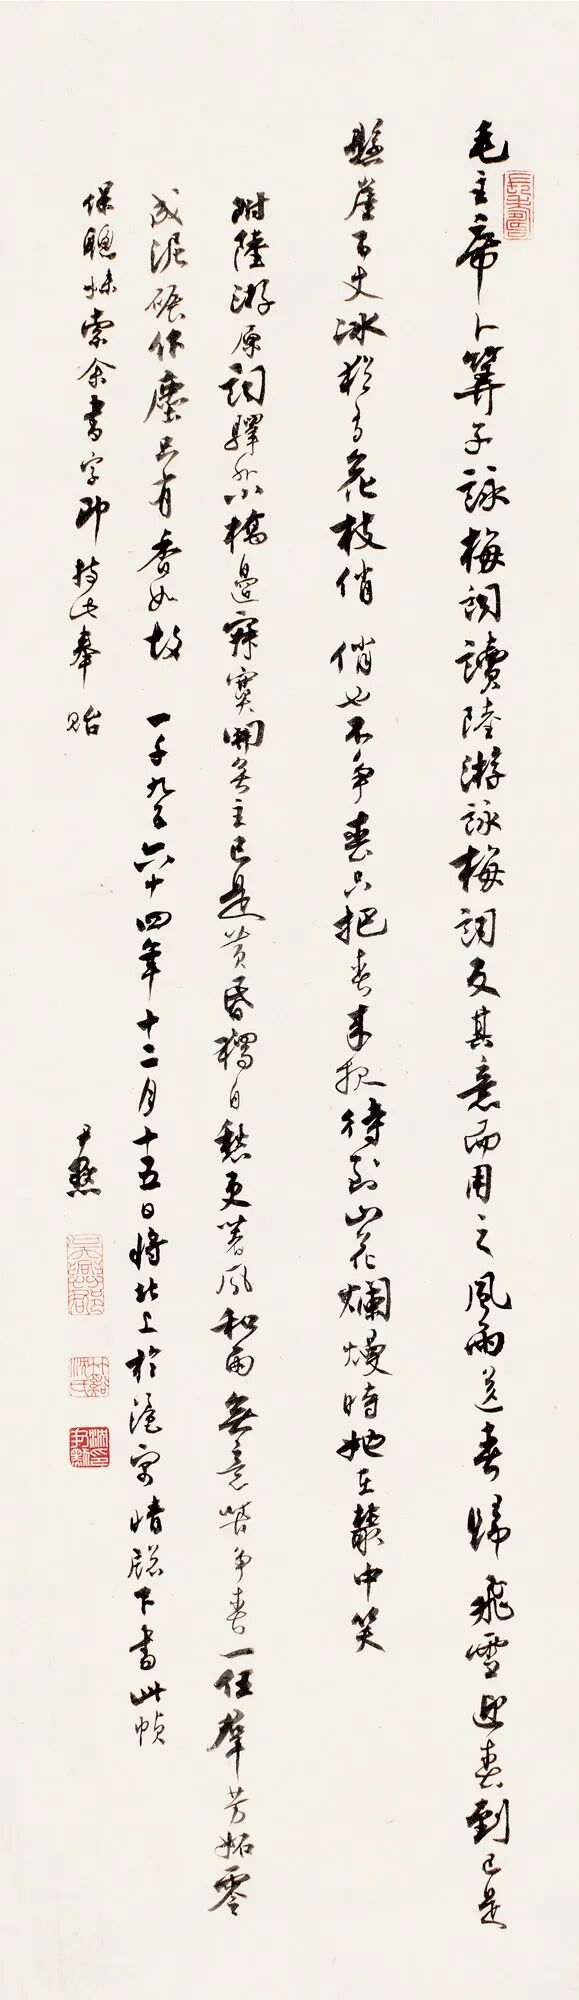 毛主席卜算子詠梅詞讀陸游詠梅詞反其意而用之風雨送春歸飛雪迎春到已是
懸崖百丈冰猶有花枝俏俏也不争春只把春來报待到山花爛熳時她在叢中笑
附陸游原詞驛外小橋邊寂寞開無主已是黄昏獨自愁更著風和雨無意苦争春一任羣芳妬零
成泥碾作塵只有香如故一千九百六十四年十二月十五日將北上於滬寓晴牕下書此幀
保聰妹索余書字即持此奉貽
尹默
吳興郡
竹谿沈氏
沈尹默印